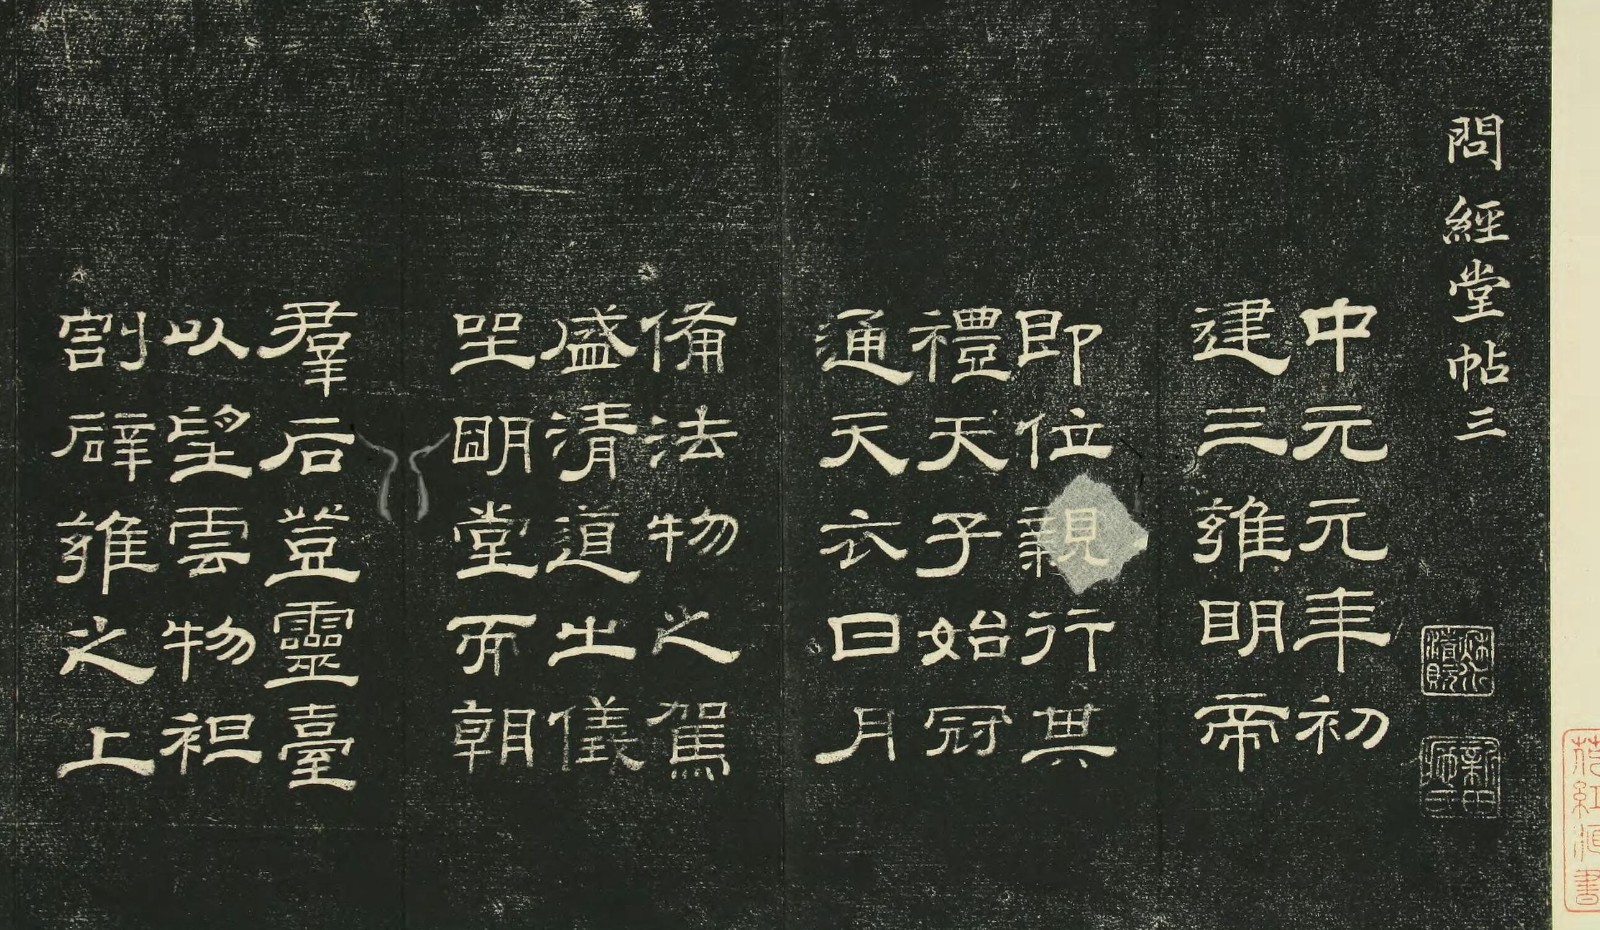 問經堂帖三
中元元年初
建三雍明帝
即位親行其
禮天子始冠
通天衣日月
備法物之駕
盛清道之儀
坐明堂而朝
羣后登靈臺
以望雲物袒
割辟雍之上